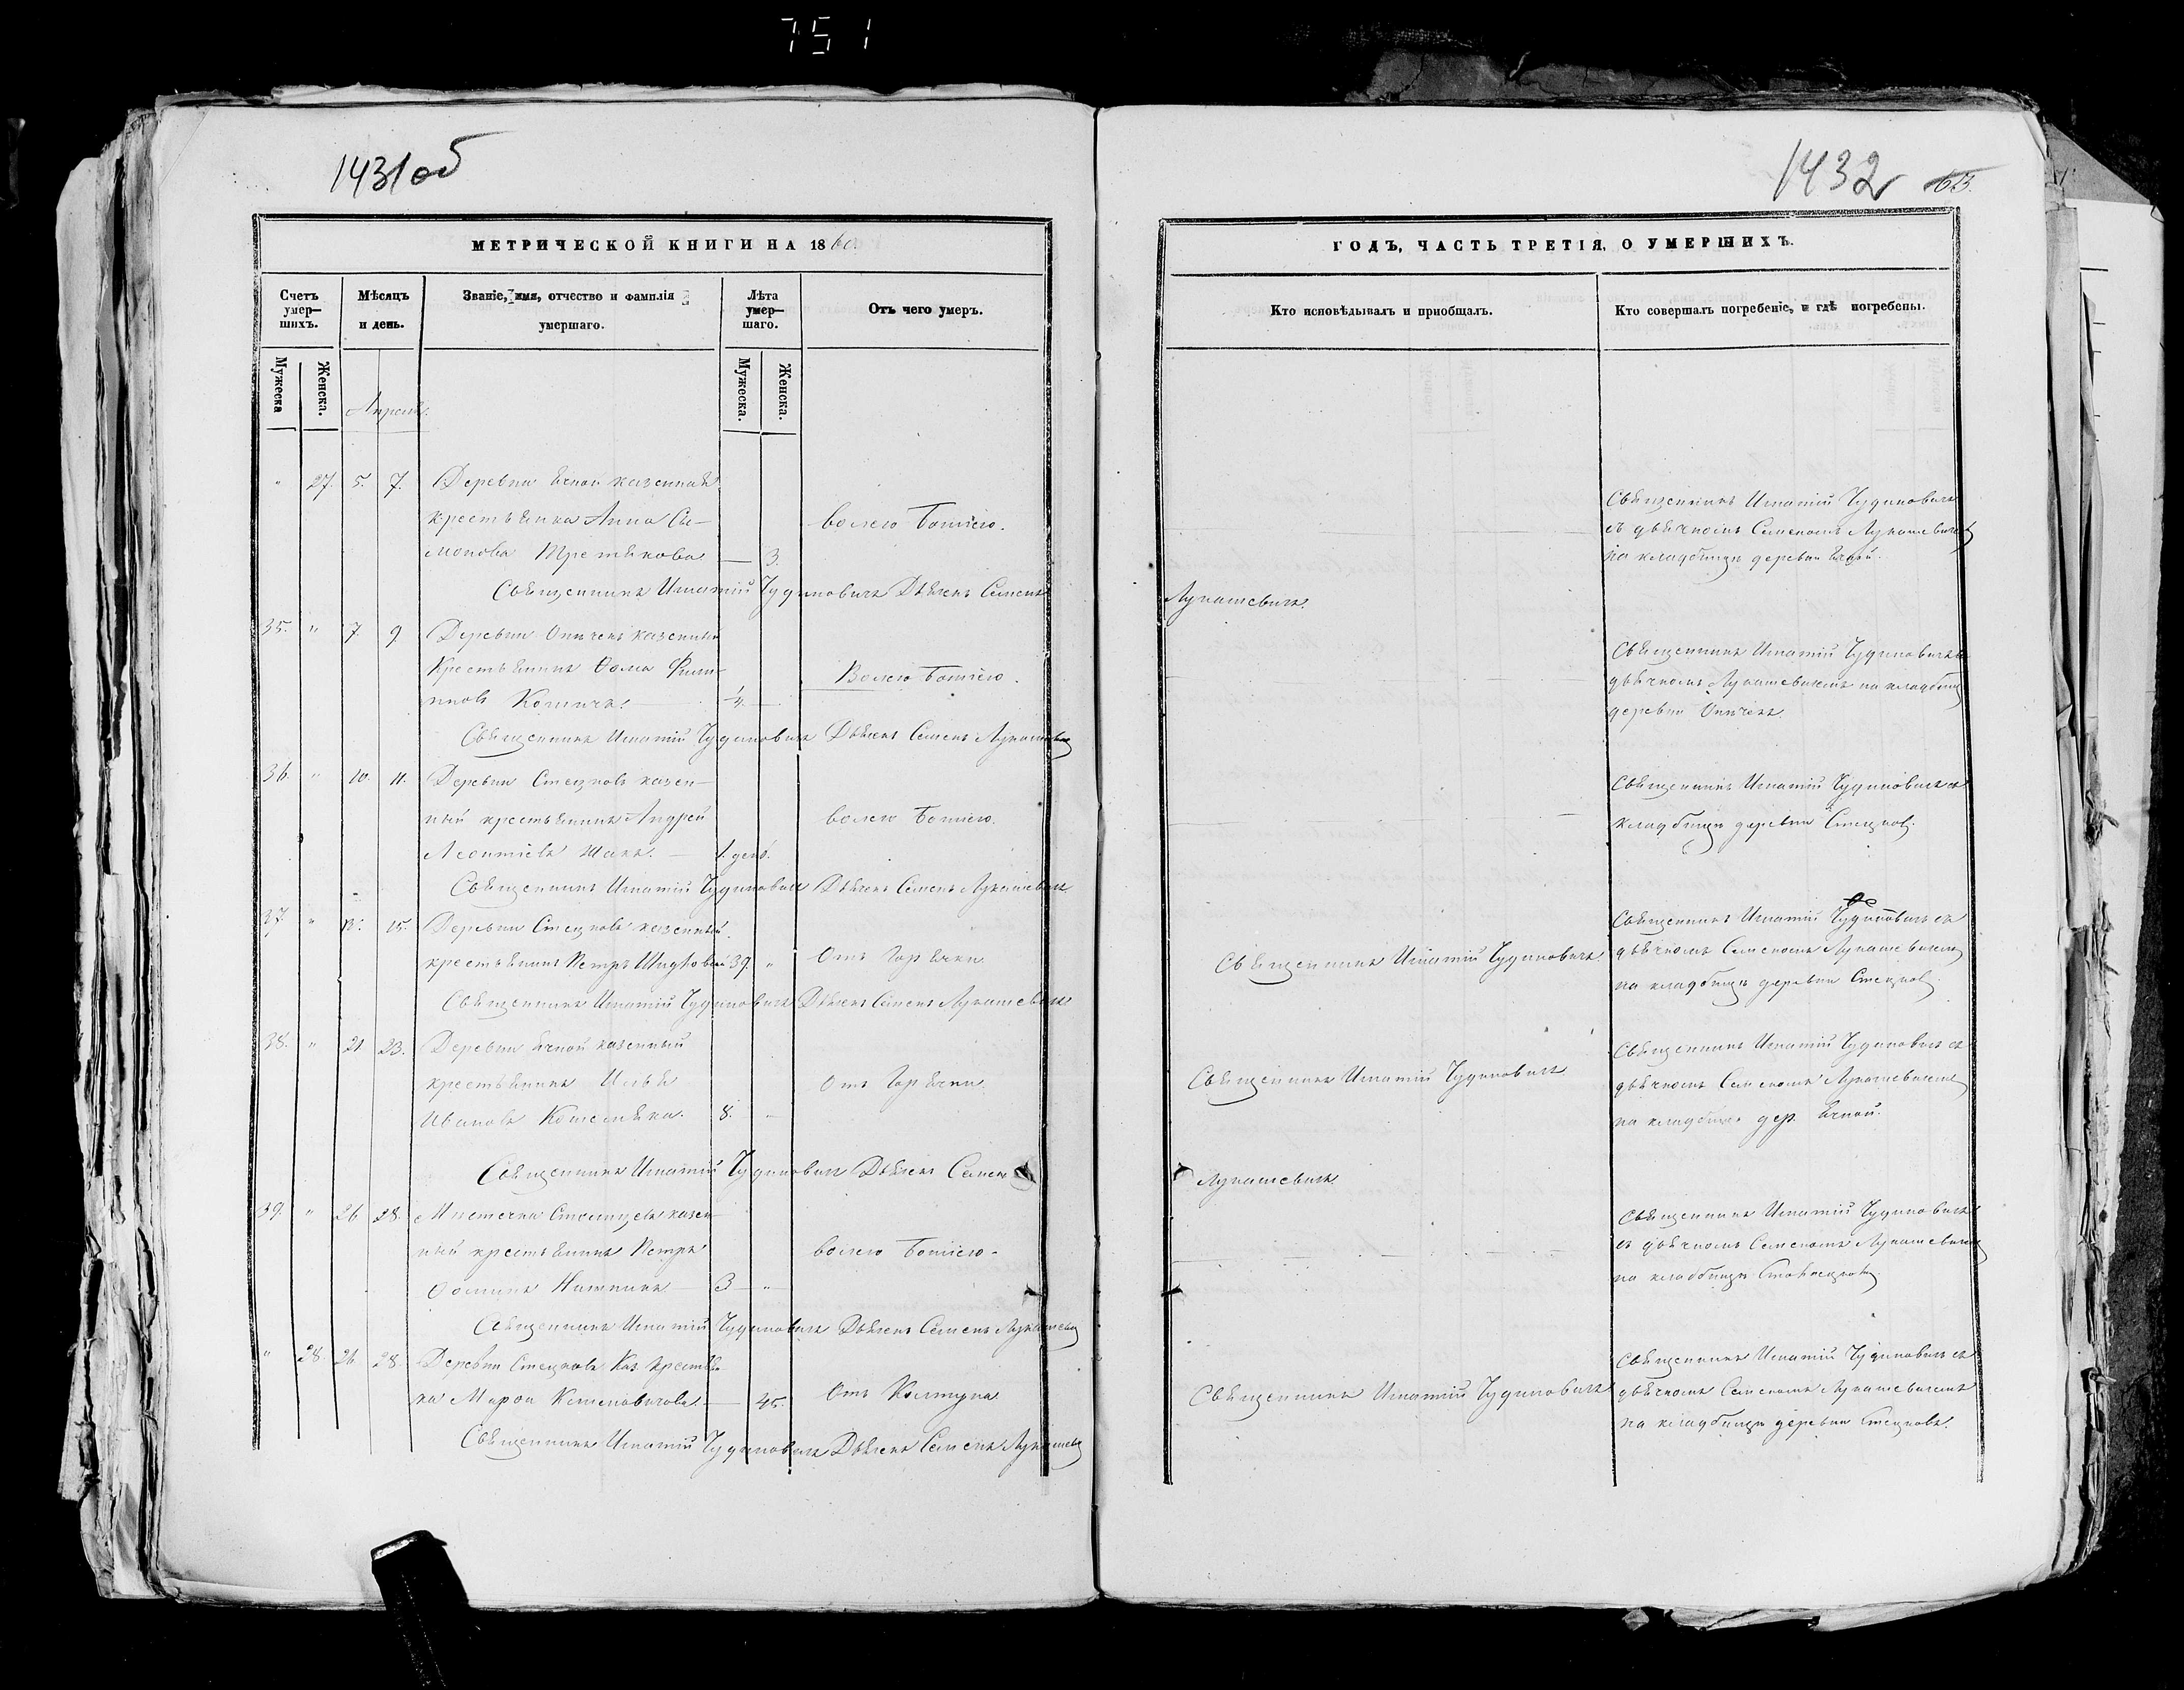 751
1431об
МЕТРИЧЕСКОЙ КНИГИ НА 1860.
Счетъ умер—шихъ.
Мѣсяцъ и день.
Званіе, имя, отчество и фамилія умершаго.
Лѣта умер—шаго.
Отъ чего умеръ.
Мужеска
Женска.
Мужеска.
Женска.
Апрель.
" 27. 5. 7. Деревни Ячной казенная
крестьянка Анна Си— волею Божіею.
монова Третякова — 3.
Священникъ Игнатій Чудиновичъ Дьячекъ Семенъ
35. " 7. 9. Деревни Опичекъ казенный
Крестьянинъ Ѳома Филип— Волею Божіею.
повъ
Священникъ Игнатій Чудиновичъ Дьячекъ Семенъ Лукашевичъ
36. " 10. 11. Деревни Стецковъ казен—
ный крестьянинъ Андрей волею Божіею.
Леонтіевъ — 1. день.
Священникъ Игнатій Чудиновичъ Дьячекъ Семенъ Лукашевичъ
37. " 15. Деревни Стецковъ казенный
крестьянинъ Петръ 39. " Отъ Горячки
Священникъ Игнатій Чудиновичъ Дьячекъ Семенъ Лукашевичъ
38. " 21. 23. Деревни Ячной казенный
крестьянинъ Илья Отъ Горячки
Ивановъ 8. "
Священникъ Игнатій Чудиновичъ Дьячекъ Семенъ
39. " 26 28. Мѣстечка казен—
ный крестьянинъ Петръ волею Божіею.
Ѳоминъ — 3 — "
Священникъ Игнатій Чудиновичъ Дьячекъ Семенъ Лукашевичъ
" 28. 26 28. Деревни Стецковъ Каз. крестьян
ка — 45. Отъ Колтуна
Священникъ Игнатій Чудиновичъ Дьячекъ Семенъ Лукашевичъ
1432 63.
ГОДЪ, ЧАСТЬ ТРЕТІЯ, О УМЕРШИХЪ.
Кто исповѣдывалъ и пріобщалъ.
Кто совершалъ погребеніе, и гдѣ погребены.
Священникъ Игнатій Чудиновичъ
съ дьячкомъ Семеномъ Лукашевичемъ
на кладбищѣ деревни Ячной.
Лукашевичъ.
Священникъ Игнатій Чудиновичъ съ
дьячкомъ Лукашевичемъ на кладбищѣ
деревни Опичекъ.
Священникъ Игнатій Чудиновичъ на
кладбищѣ деревни Стецковъ.
Священникъ Игнатій Чудиновичъ съ
Священникъ Игнатій Чудиновичъ. дьячкомъ Семеномъ Лукашевичемъ
на кладбищѣ деревни Стецковъ
Священникъ Игнатій Чудиновичъ съ
Священникъ Игнатій Чудиновичъ дьячкомъ Семеномъ Лукашевичемъ
на кладбищѣ дер. Ячной.
Лукашевичъ.
Священникъ Игнатій Чудиновичъ
съ дьячкомъ Семеномъ Лукашевичемъ
на кладбищѣ
Священникъ Игнатій Чудиновичъ съ
Священникъ Игнатій Чудиновичъ дьячкомъ Семеномъ Лукашевичемъ
на кладбищѣ деревни Стецковъ.